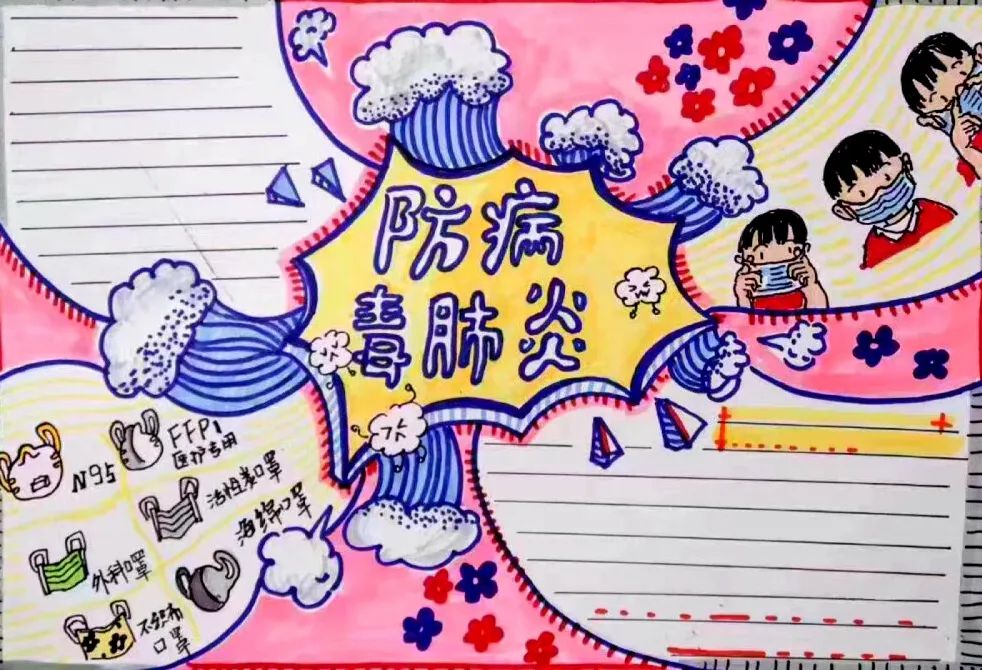 防病
毒肺炎
N95
FFP1
医护专用
活性炭口罩
外科口罩
海绵口罩
不织布
口罩